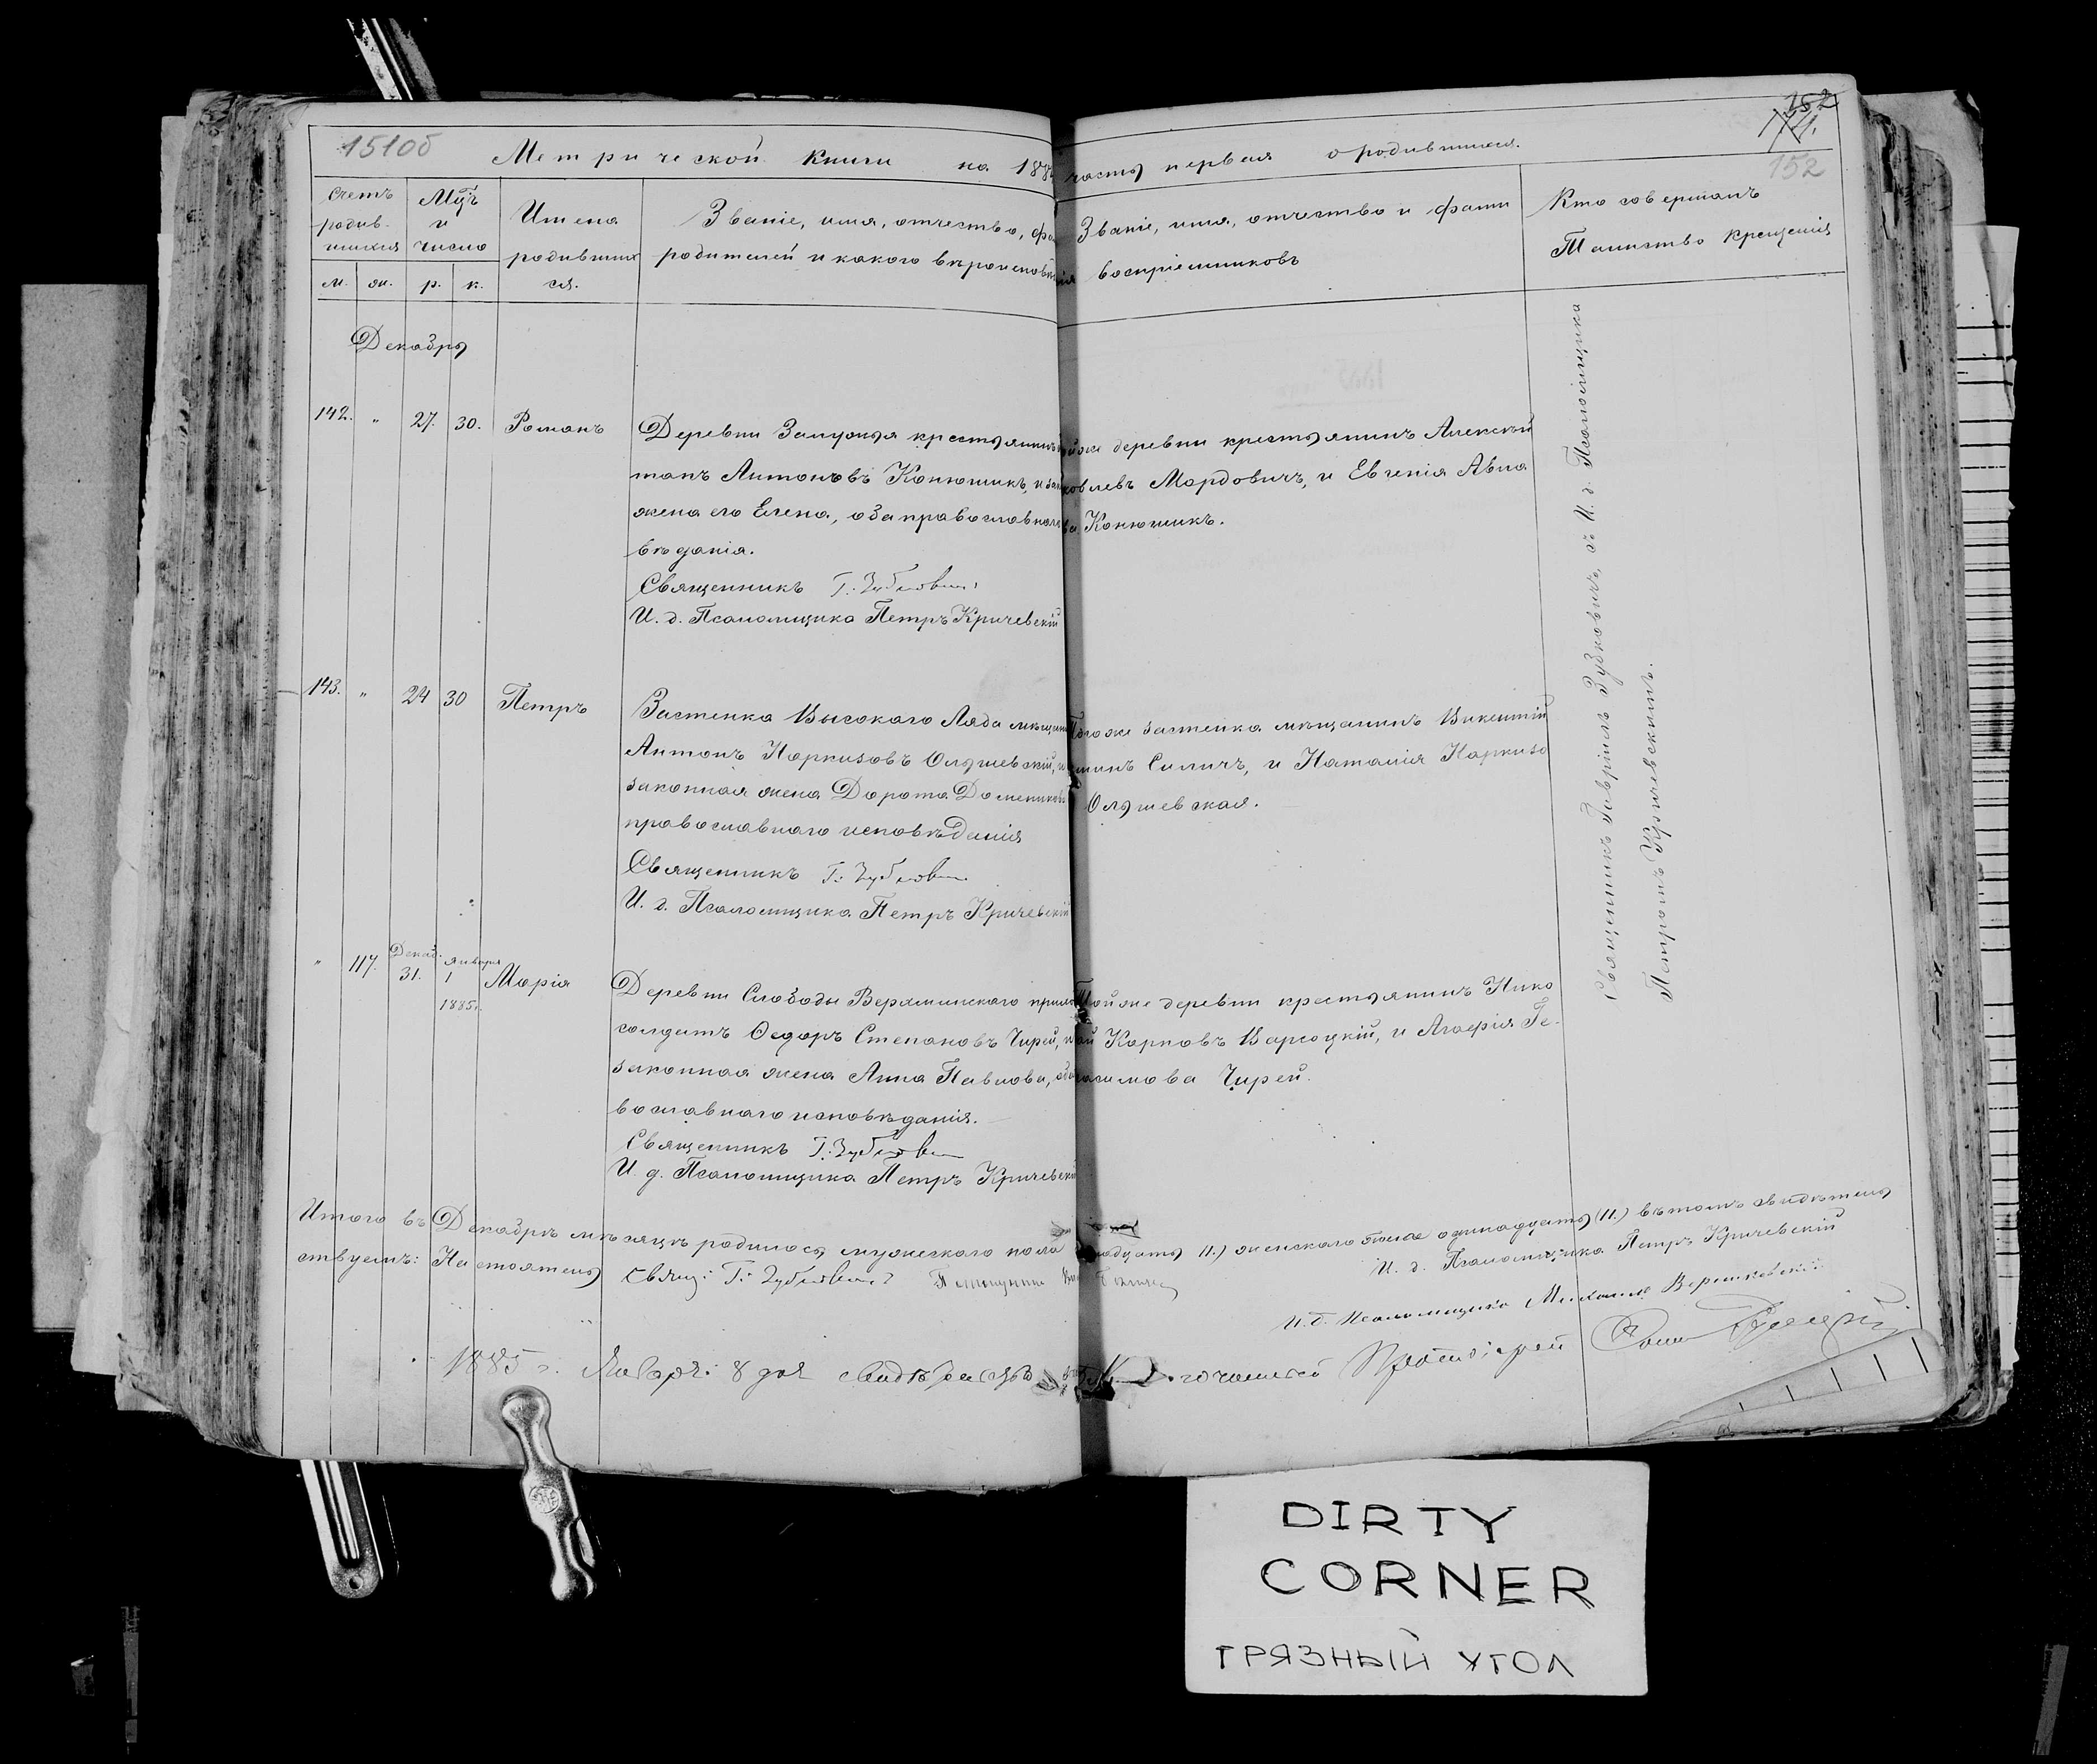 151об
152
171.
152
Метрической книги на 188 часть первая о родившихся.
Счетъ родившихся
Мцъ и число
Имена родившихся.
Званіе, имя, отчество, родителей и какого вѣроисповѣданія
Званіе, имя, отчество и фами воспріемниковъ
Кто совершалъ Таинство крещенія
м. ж. р. к.
Декабрь
142. " 27. 30. Романъ
Деревни Замужья крестьянинъ
танъ Антоновъ Конюшикъ, и зак
жена его Елена, оба православнаго
вѣданія.
Священникъ Г. Зубковичъ
И. д. Псаломщика Петръ Кричевскій
же деревни крестьянинъ Алексѣй
ковлевъ Мордовичъ, и Евгенія Авла
ва Конюшикъ.
143. " 24 30 Петръ
Застенка Высокаго Ляда мѣщан
Антонъ Наркизовъ Ольшевскій, и
законная жена Дорота Доменикова
православнаго исповѣданія
Священникъ Г. Зубкович
И. д. Псаломщика Петръ Кричевскій
Тогоже застенка мѣщанинъ Викентій
Силичъ, и Наталія Наркизо
Ольшевская.
" 117. Декаб. 31. Января 1 1885г. Марія
Деревни Слободы Верхминскаго прих
солдатъ Ѳедоръ Степановъ Чирей, и
законная жена Анна Павлова, оба
вославнаго исповѣданія.
Священникъ Г. Зубкович
И. д. Псаломщика Петръ Кричевскій
Тойже деревни крестьянинъ Нико
лай Карповъ Варсоцкій, и Агафія Ге-
расимова Чирей.
Священникъ Гавріилъ Зубковичъ, съ И. д. Псаломщика
Петромъ Кричевскимъ.
Итого въ Декабрѣ мѣсяцѣ родилось мужескаго пола надцать 11.) женскаго пола одинадцать (11.) въ томъ свидѣтель
ствуемъ: Настоятель Свящ: Г: Зубкович
И. д. Псаломщика Петръ Кричевскій
И. д. Псаломщика Михаилъ
1885 г. Января 8 дня свидѣтельств Благочинный Протоіерей
DIRTY
CORNER
ГРЯЗНЫЙ УГОЛ